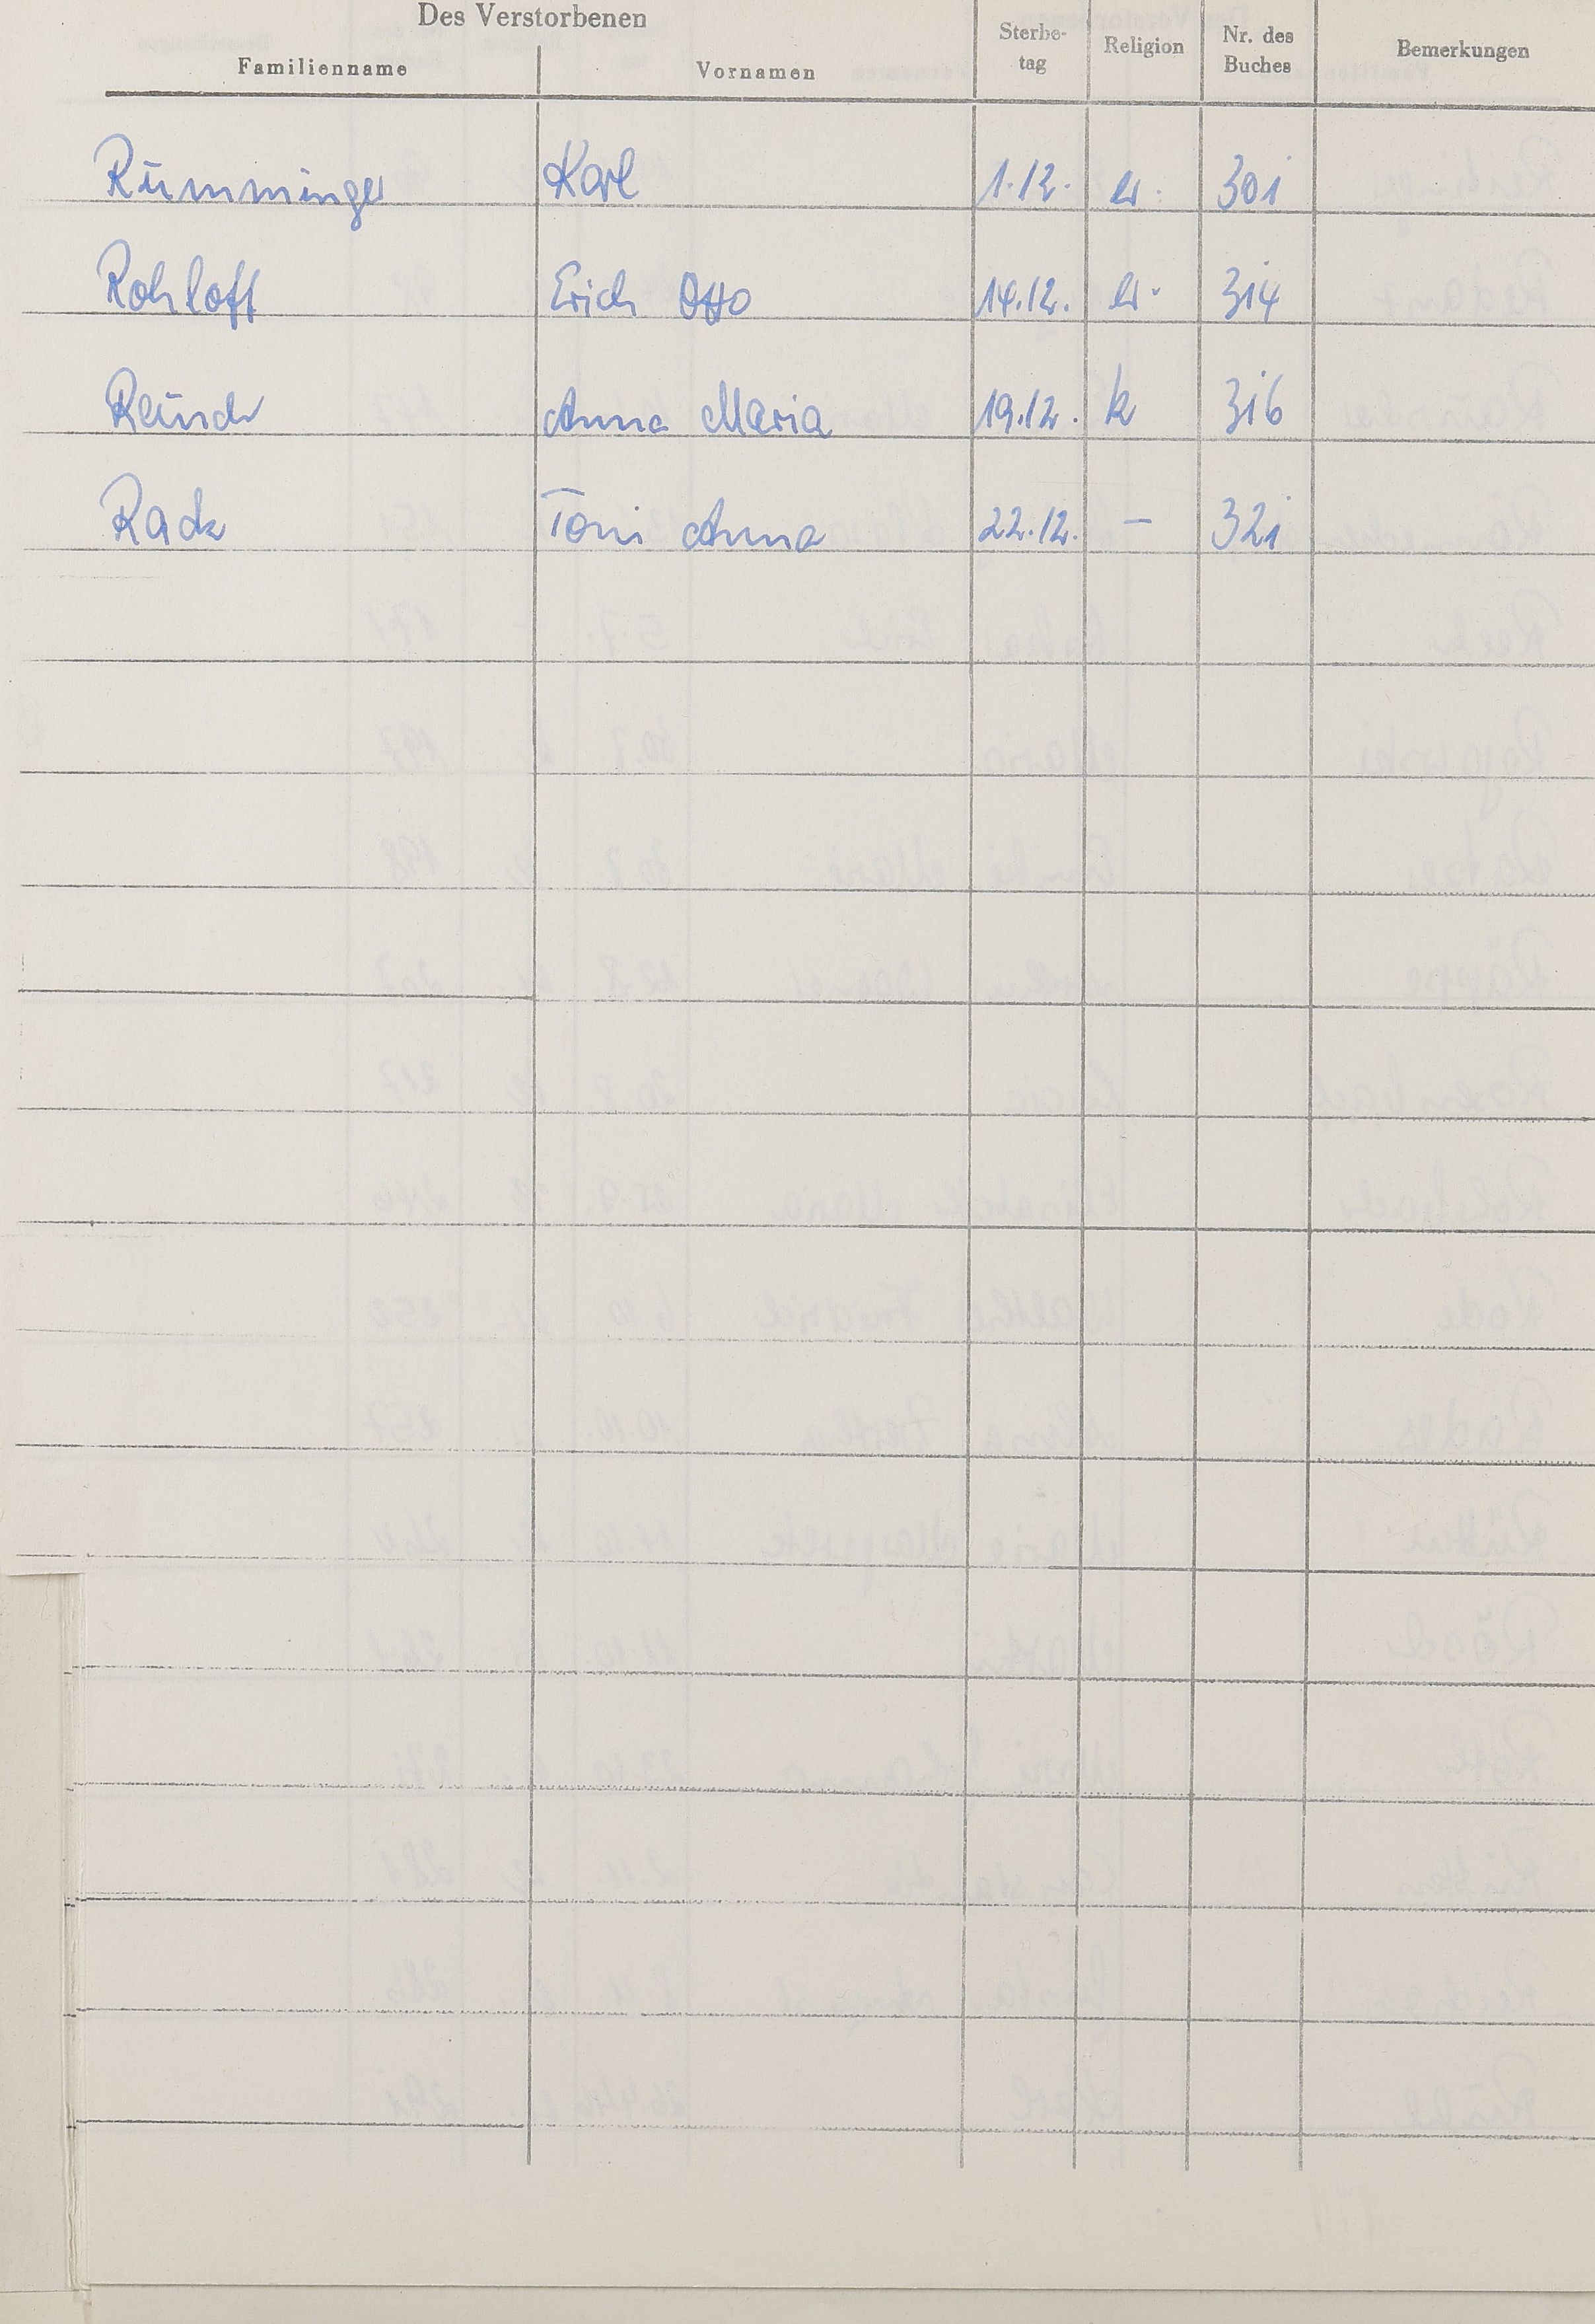 Des Verstorbenen
Familienname Vornamen Sterbe-tag Religion Nr. des Buches Bemerkungen
Rümminger Karl 1.12. ev. 301
Rohloff Erich Otto 14.12. ev. 314
Anna Maria 19.12. k 316
Rack Toni Anna 22.12. — 321